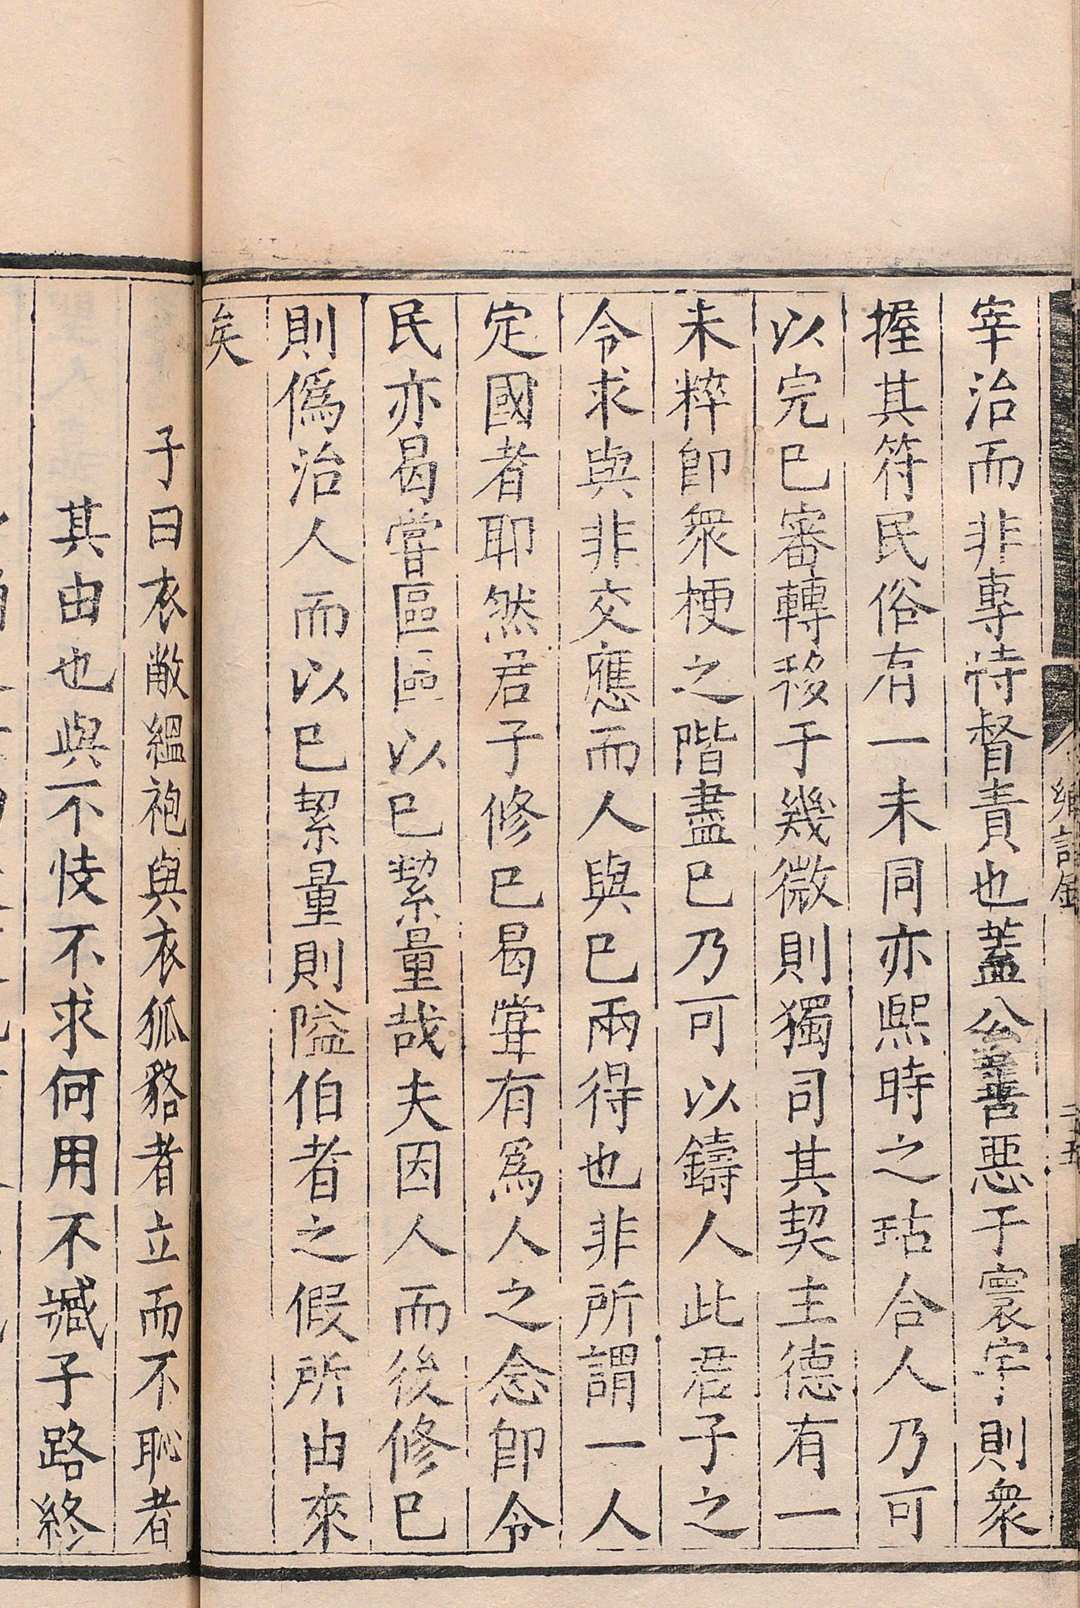 宰治而非專恃督責也蓋公善惡于寰宇則衆
握其符民俗有一未同亦熙時之玷合人乃可
以完已審轉移于幾微則獨司其契主德有一
未粹卽衆梗之階盡已乃可以鑄人此君子之
令求與非交應而人與已兩得也非所謂一人
定國者耶然君子修已曷嘗有爲人之念卽令
民亦曷嘗區區以已絜量哉夫因人而後修已
則僞治人而以已絜量則隘伯者之假所由來
矣
子曰衣敝縕袍與衣狐貉者立而不恥者
其由也與不忮不求何用不臧子路終